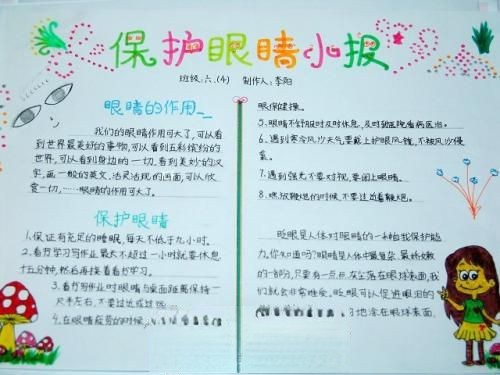 保护眼睛小报
班级:六.(4) 制作人:李阳
眼睛的作用
我们的眼睛作用可大了,可以看
到世界最美好的事物,可以看到五彩缤纷的
世界,可以看到身边的一切,看到美妙的汉
字,画一般的英文,活灵活现的画面,可以欣
赏一切,……眼睛的作用可大了。
保护眼睛
1.保证有充足的睡眠,每天不低于九小时。
2.看书学习写作业最大不超过一小时就要休息
十五分钟,然后再接着看书学习。
3.看书写作业时眼睛与桌面距离保持一
尺半左右,不要过近或过远
4.在眼睛疲劳的时候,
眼保健操。
5.眼睛不舒服时及时休息,及时到医院看病医治。
6.遇到寒冷风沙天气要戴上护眼风镜,不被风沙侵
袭。
7.遇到强光不要对视,要闭上眼睛。
8.燃放鞭炮的时候,不要过近看鞭炮。
眨眼是人体对眼睛的一种自我保护能
力,你知道吗?眼睛是人体中最复杂、最娇嫩
的一部分,只要有一点点灰尘落在眼球表面,我
们就会非常难受。眨眼可以促进眼泪的
地涂在眼球表面,